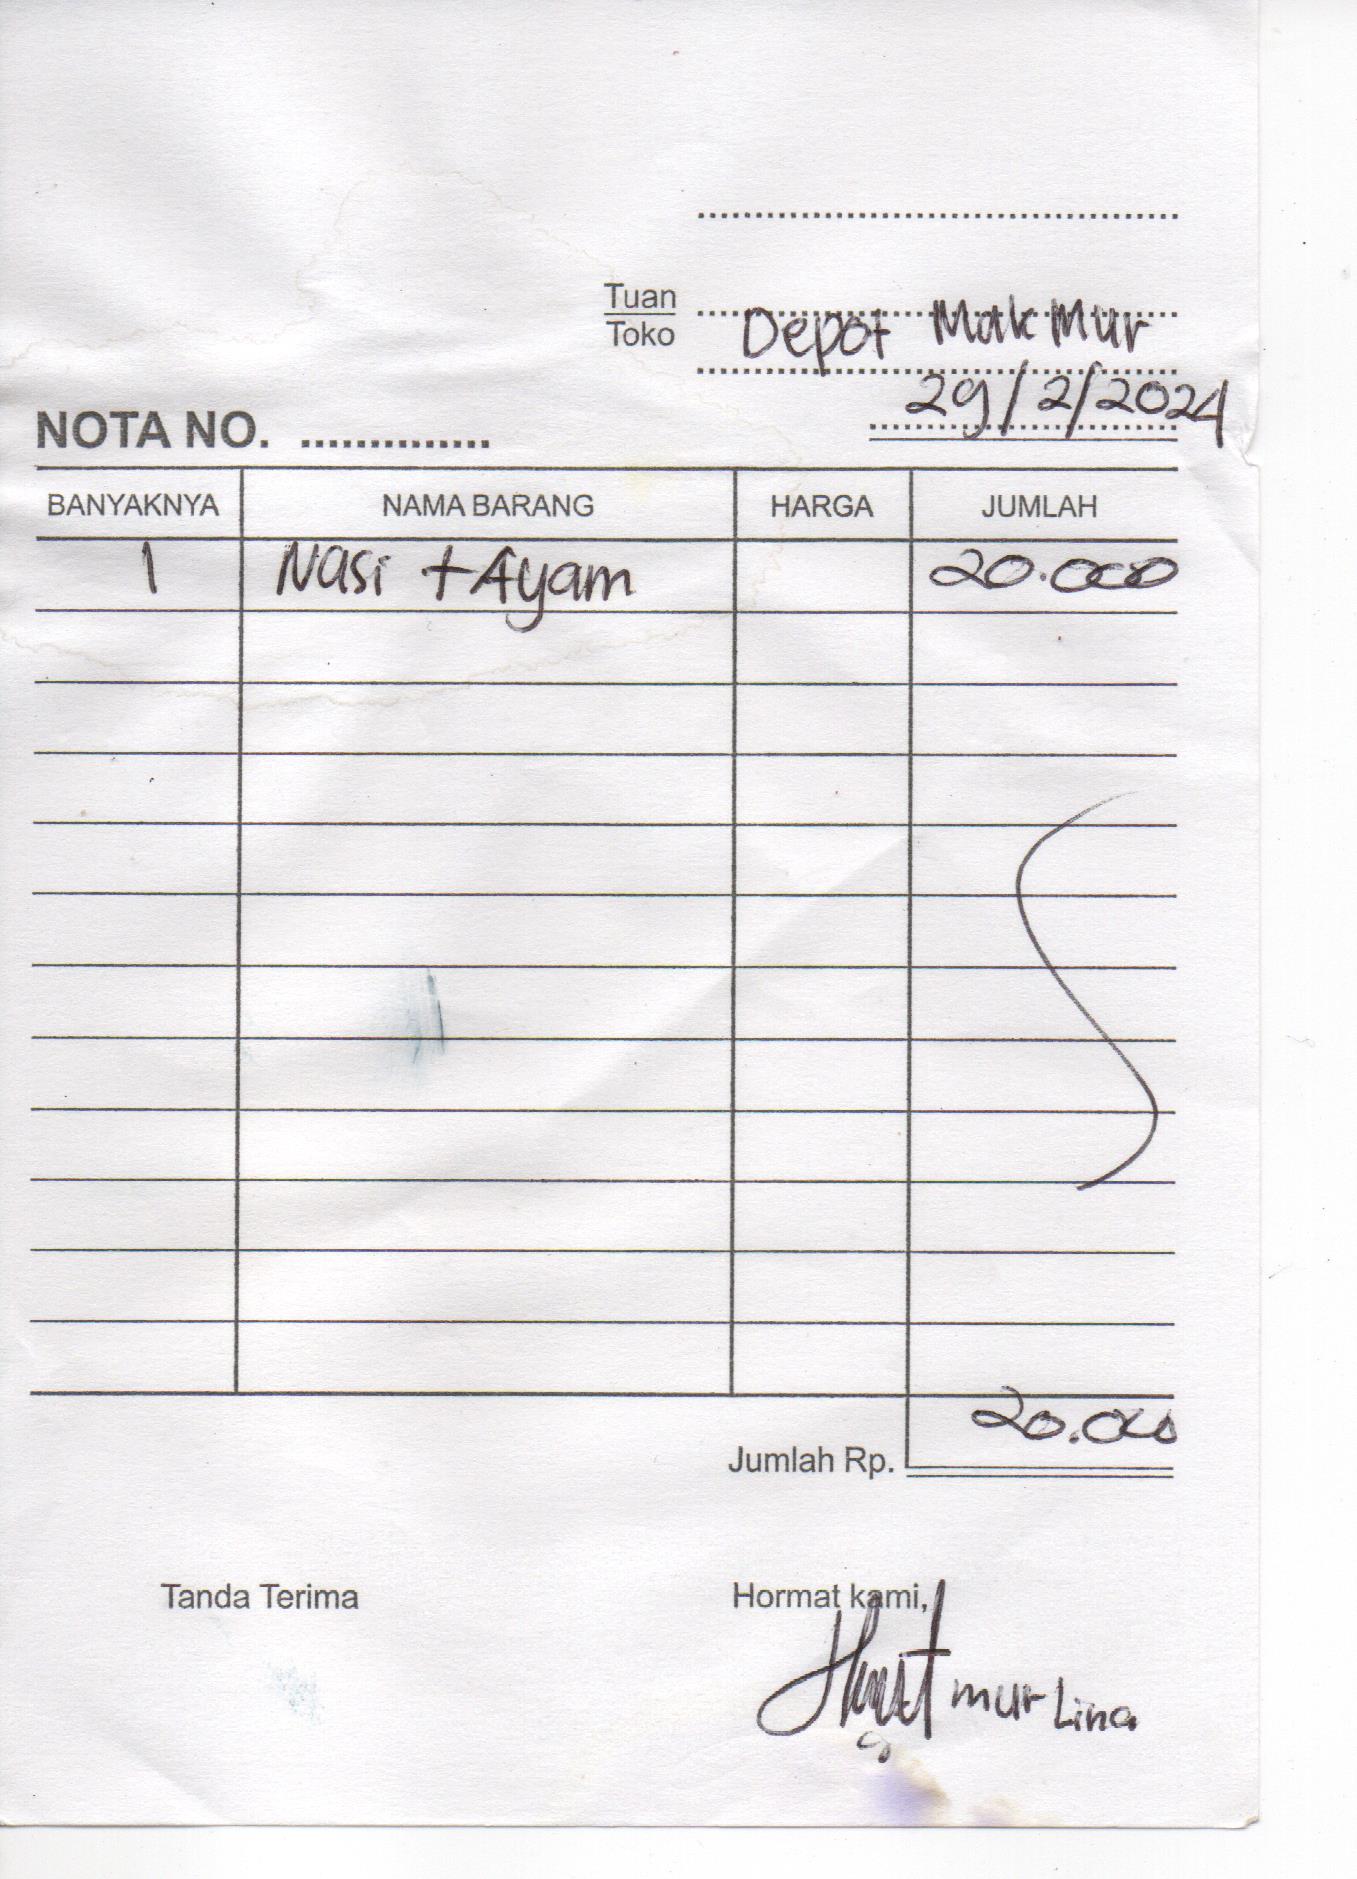 Tuan
Toko
Depot Makmur
29/2/2024
NOTA NO. ..............
BANYAKNYA NAMA BARANG HARGA JUMLAH
1 Nasi + Ayam 20.000
Jumlah Rp. 20.000
Tanda Terima Hormat kami,
mur Lina